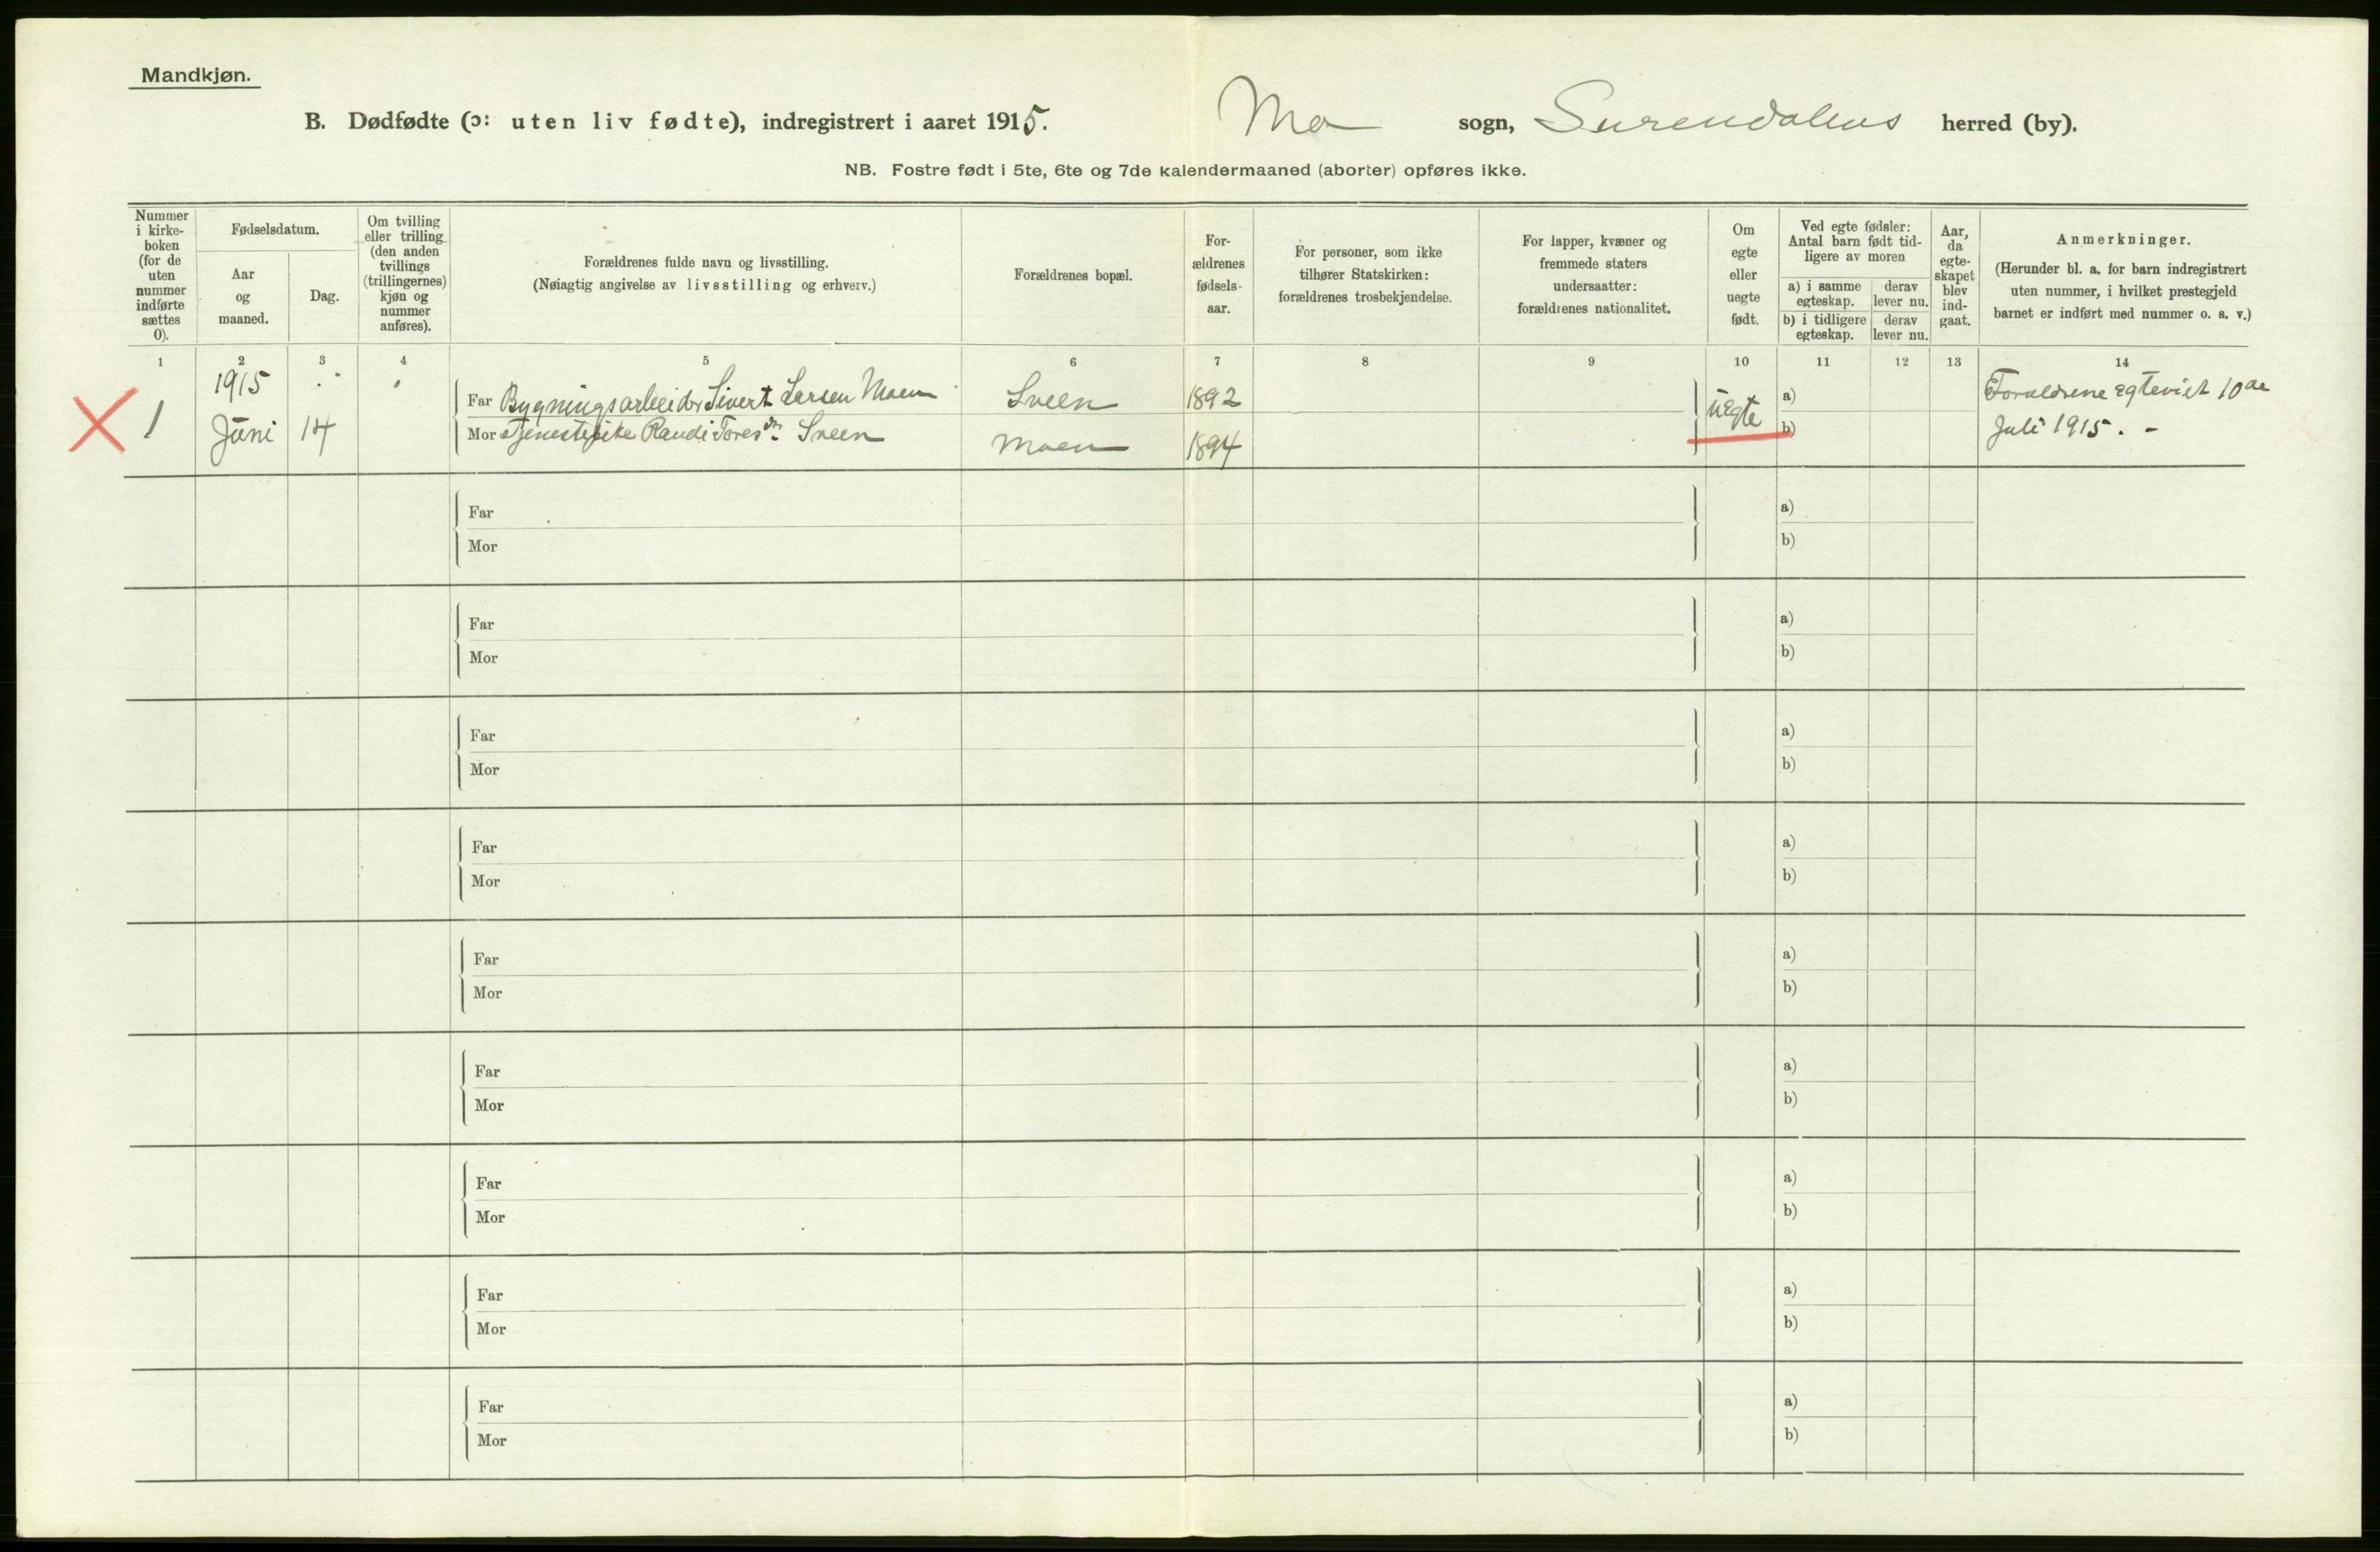 Mandkjøn.
B. Dødfødte (ɔ: uten liv fødte), indregistrert i aaret 1915. Mo sogn, Surendalens herred (by).
NB. Fostre født i 5te, 6te og 7de kalendermaaned (aborter) opføres ikke.
Nummer
i kirke-
boken
(for de
uten
nummer
indførte
sættes
0).
Fødselsdatum.
Aar
og
maaned.
Dag.
Om tvilling
eller trilling
(den anden
tvillings
(trillingernes)
kjøn og
nummer
anføres).
Forældrenes fulde navn og livsstilling.
(Nøiagtig angivelse av livsstilling og erhverv.)
Forældrenes bopæl.
For-
ældrenes
fødsels-
aar.
For personer, som ikke
tilhører Statskirken:
forældrenes trosbekjendelse.
For lapper, kvæner og
fremmede staters
undersaatter:
forældrenes nationalitet.
Om
egte
eller
uegte
født.
Ved egte fødsler:
Antal barn født tid-
ligere av moren
a) i samme
egteskap.
derav
lever nu.
b) i tidligere
egteskap.
derav
lever nu.
Aar,
da
egte-
skapet
blev
ind-
gaat.
Anmerkninger.
(Herunder bl. a. for barn indregistrert
uten nummer, i hvilket prestegjeld
barnet er indført med nummer o. s. v.)
1 2 3 4 5 6 7 8 9 10 11 12 13 14
1915 Far Bygningsarbeider Sivert Larsen Moen Sveen 1892 uegte a) Forældrene egteviet 10de
1 Juni 14 Mor Tjenestepike Randi Toresdr. Sveen Moen 1894 b) Juli 1915. -
Far a)
Mor b)
Far a)
Mor b)
Far a)
Mor b)
Far a)
Mor b)
Far a)
Mor b)
Far a)
Mor b)
Far a)
Mor b)
Far a)
Mor b)
Far a)
Mor b)